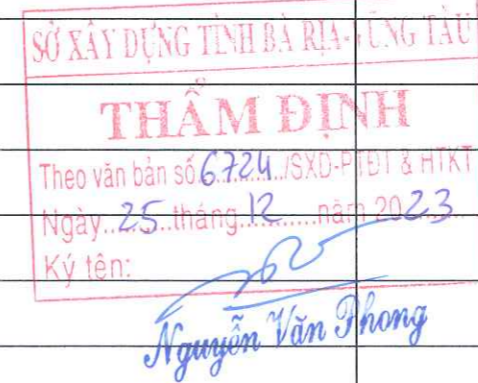 SỞ XÂY DỰNG TỈNH BÀ RỊA-VŨNG TÀU
THẨM ĐỊNH
Theo văn bản số 6724 /SXD-PTĐT & HTKT
Ngày 25 tháng 12 năm 2023
Ký tên:
Nguyễn Văn Phong